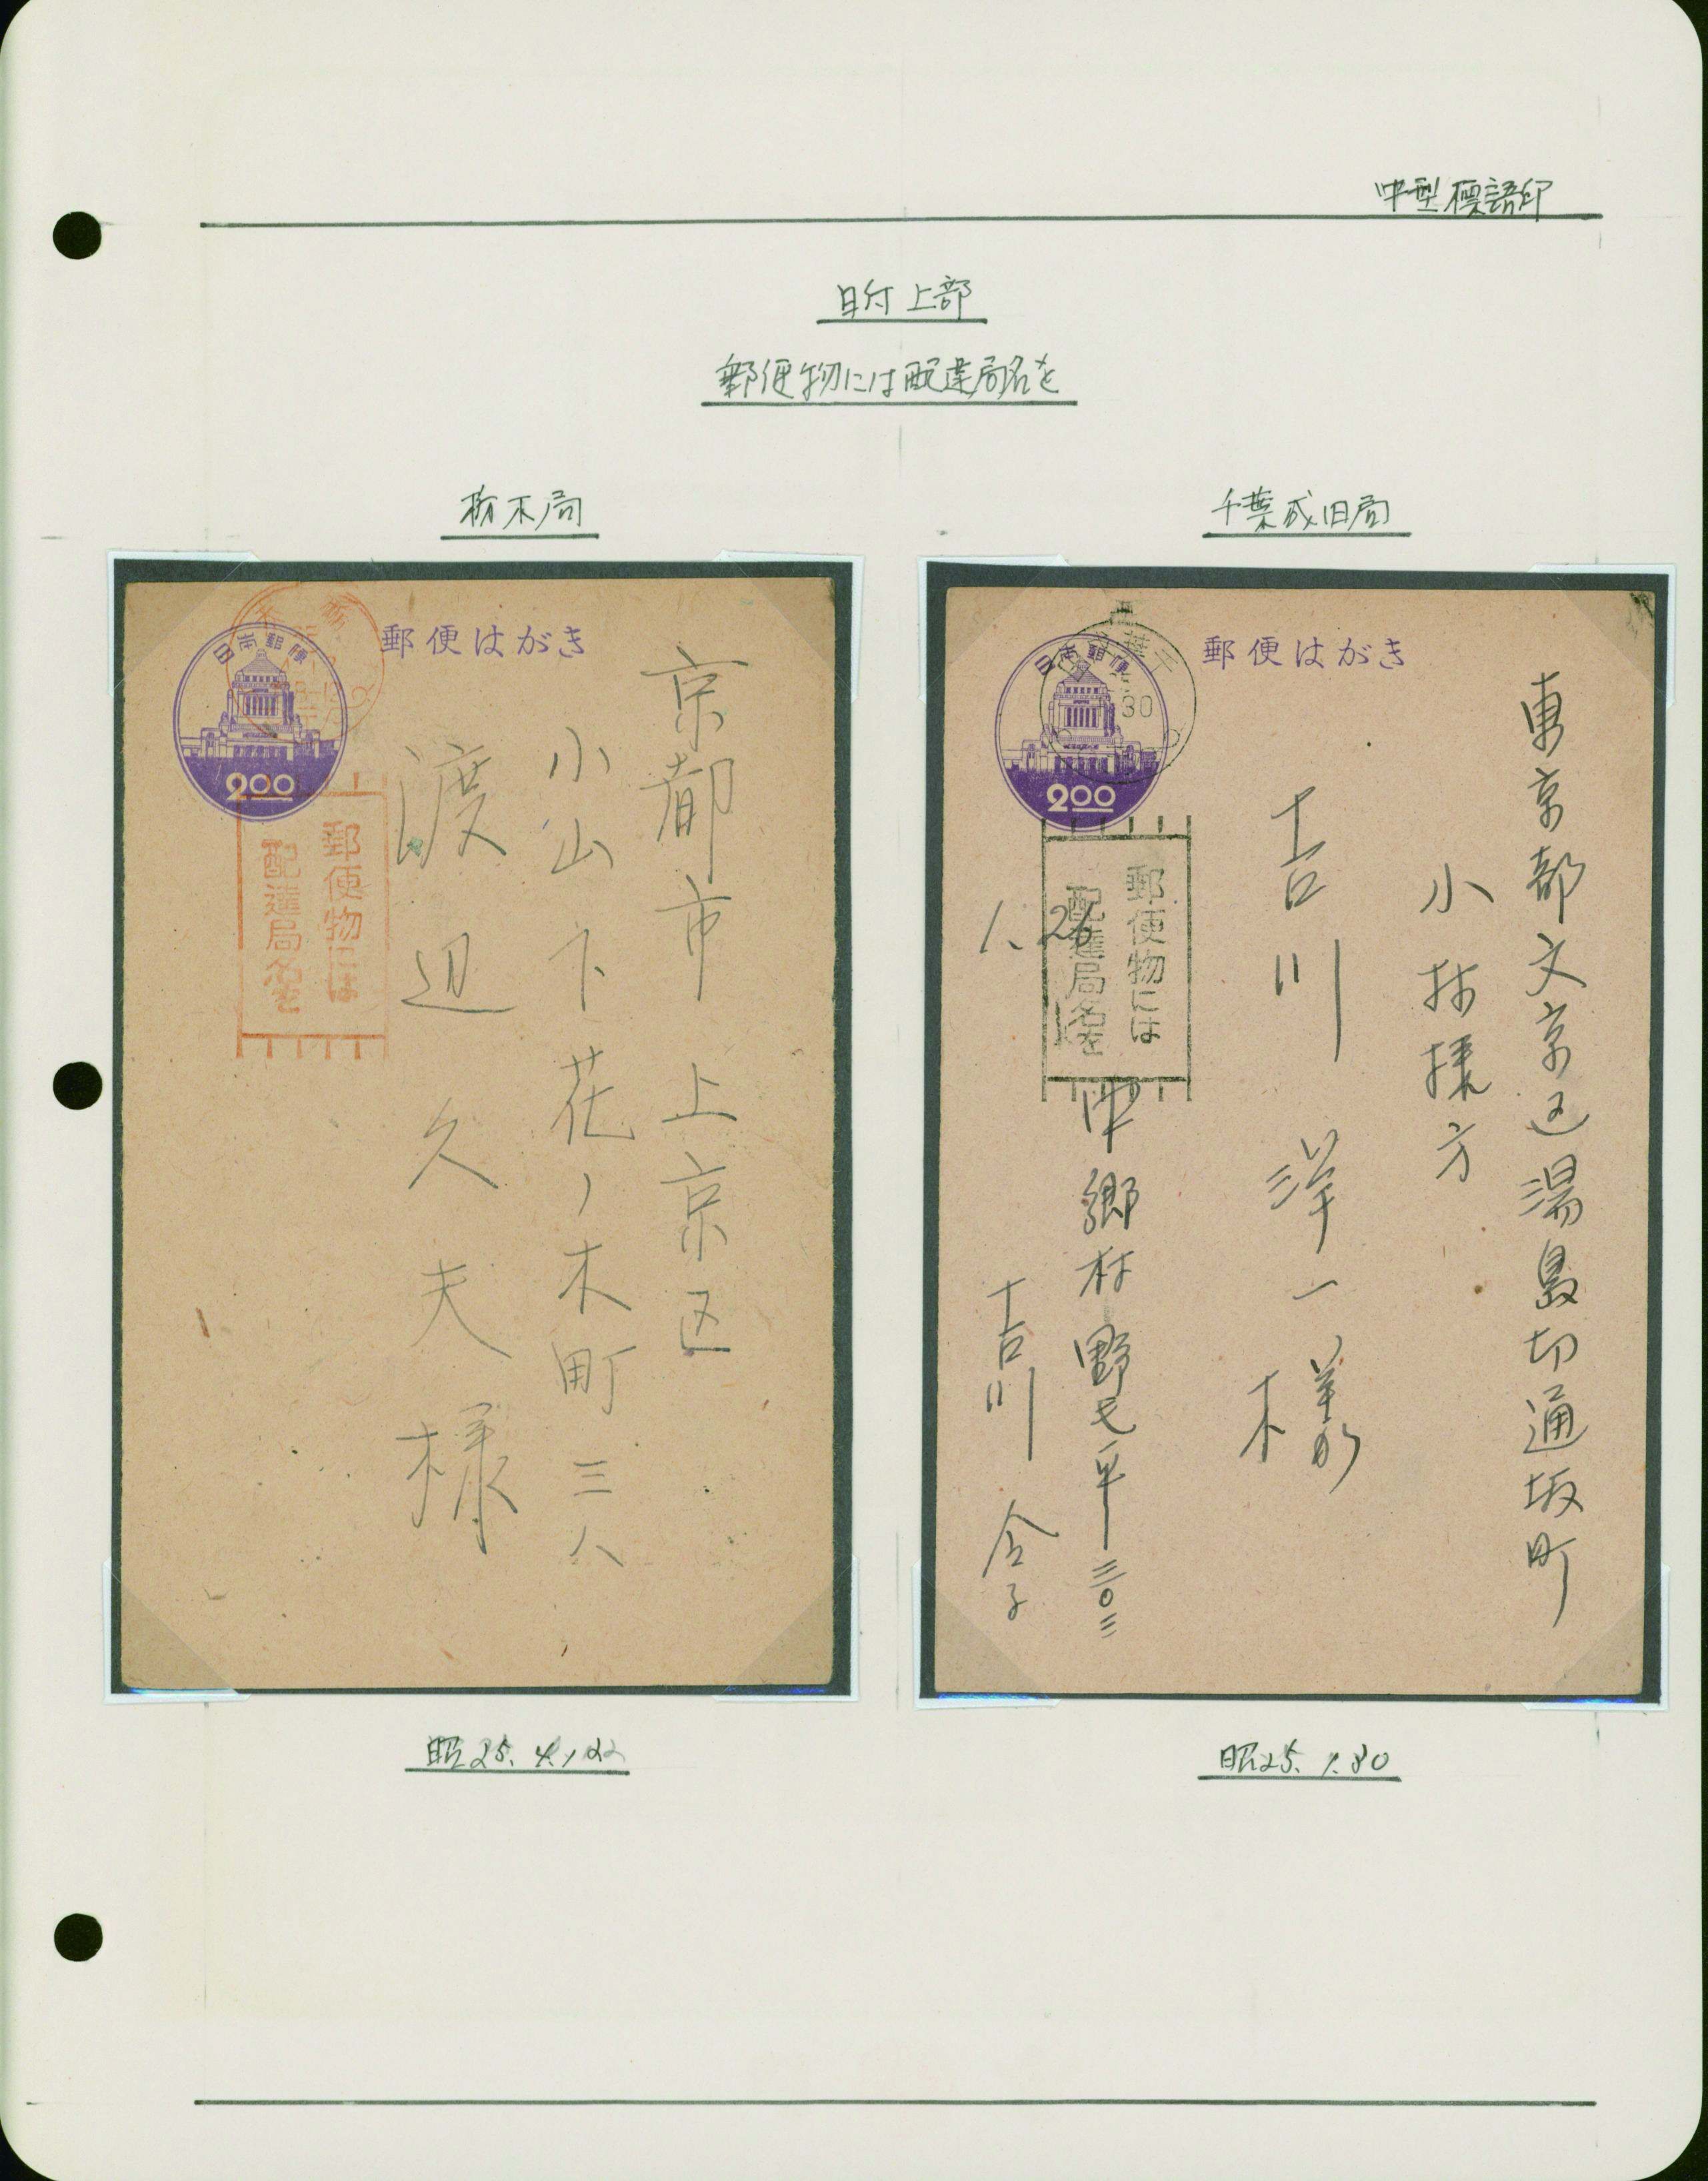 中型標語印
日付上部
郵便物には配達局名を
栃木局
千葉成田局
郵便はがき
日本郵便
200
栃木
郵便物には
配達局名を
京都市上京区
小山下花ノ木町三八
渡辺久夫様
郵便はがき
日本郵便
200
千葉
30
郵便物には
配達局名を
東京都文京区湯島切通坂町
小林様方
吉川洋一様
1.26
中郷村野毛平三〇三
吉川
昭25.4.22
昭25.1.30